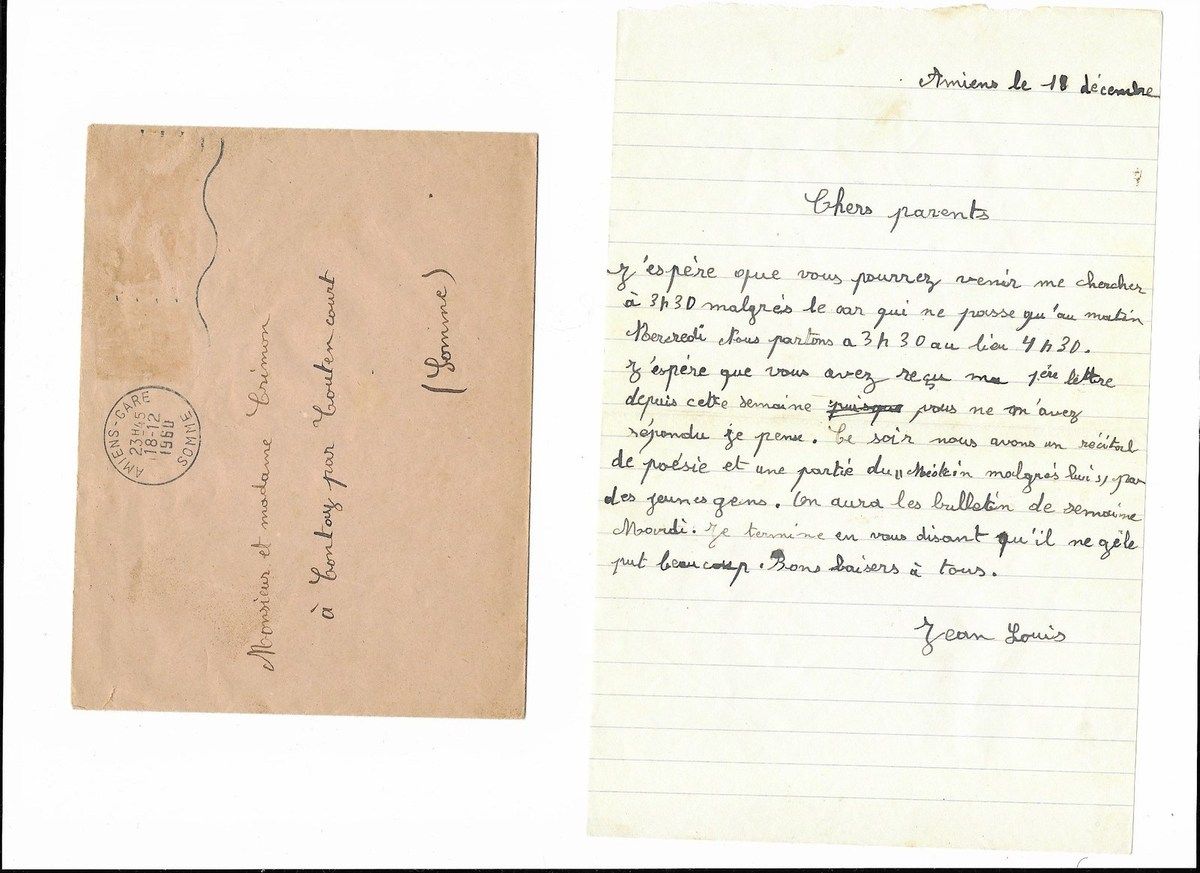 AMIENS-GARE
23H45
18-12
1960
SOMME
Monsieur et madame Crimon
à Contay par Contencourt
(Somme)
Amiens le 18 décembre
Chers parents
J'espère que vous pourrez venir me chercher
à 3h30 malgrés le car qui ne passe qu'au matin
Mercredi Nous partons a 3h30 au lieu 4h30.
J'espère que vous avez reçu ma 1ère lettre
depuis cette semaine puisque vous ne m'avez
répondu je pense. Ce soir nous avons un récital
de poésie et une partie du "Médecin malgrés lui", par
des jeunes gens. On aura les bulletin de semaine
Mardi. Je termine en vous disant qu'il ne gèle
put beaucoup. Bons baisers à tous.
Jean Louis